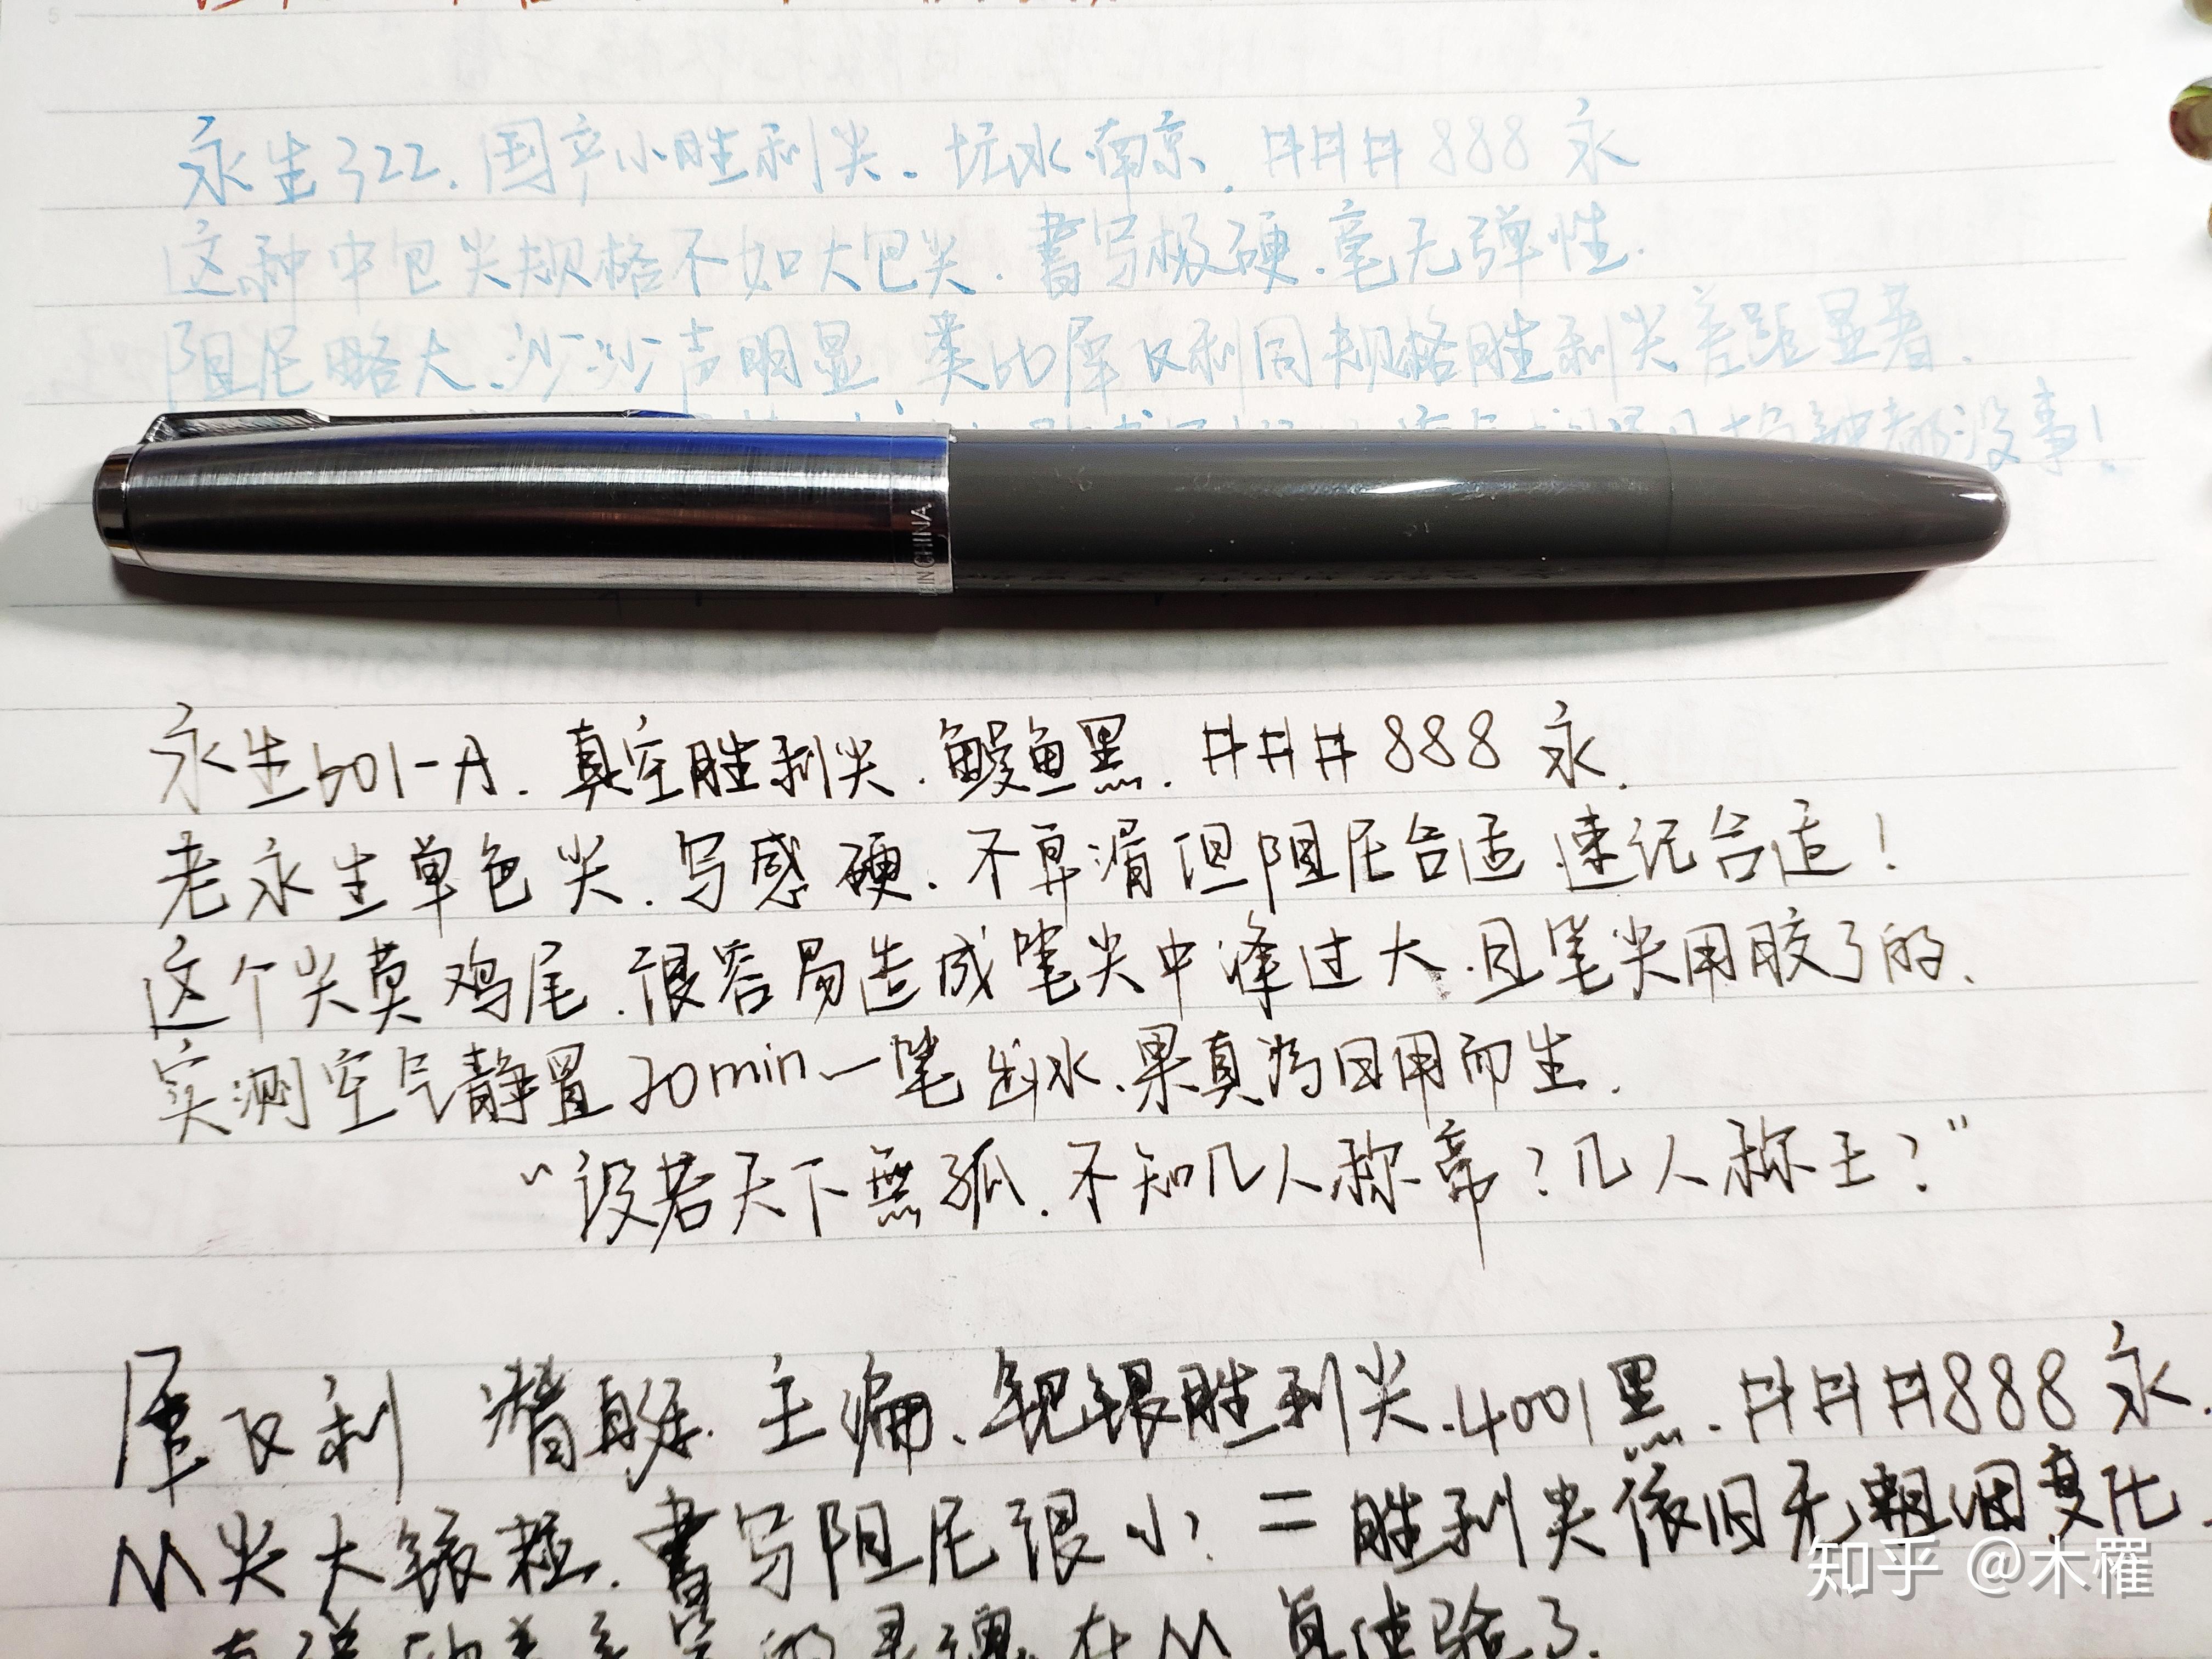 永生322.国产小胜利尖.坛水南京.井井井888永
这种中包尖规格不如大包尖.書写极硬.毫无弹性.
阻尼略大.沙沙声明显 类比摩尔利同规格胜利尖差距显著.
都没事!
EIN CHINA
永生601-A.真空胜利尖.鳗鱼黑.井井井888永.
老永生单色尖.写感硬.不算滑但阻尼合适.速记合适!
这个尖莫鸡尾.很容易造成笔尖中缝过大.且笔尖用胶了的.
实测空气静置20min一笔出水.果真为日用而生.
“设若天下無孤.不知几人称帝?几人称王?”
主编.钯银胜利尖.4001黑.井井井888永.
M尖大铱粒.書写阻尼很小.二胜利尖依旧无粗细变化.
在M 真体验了.
知乎 @木罹